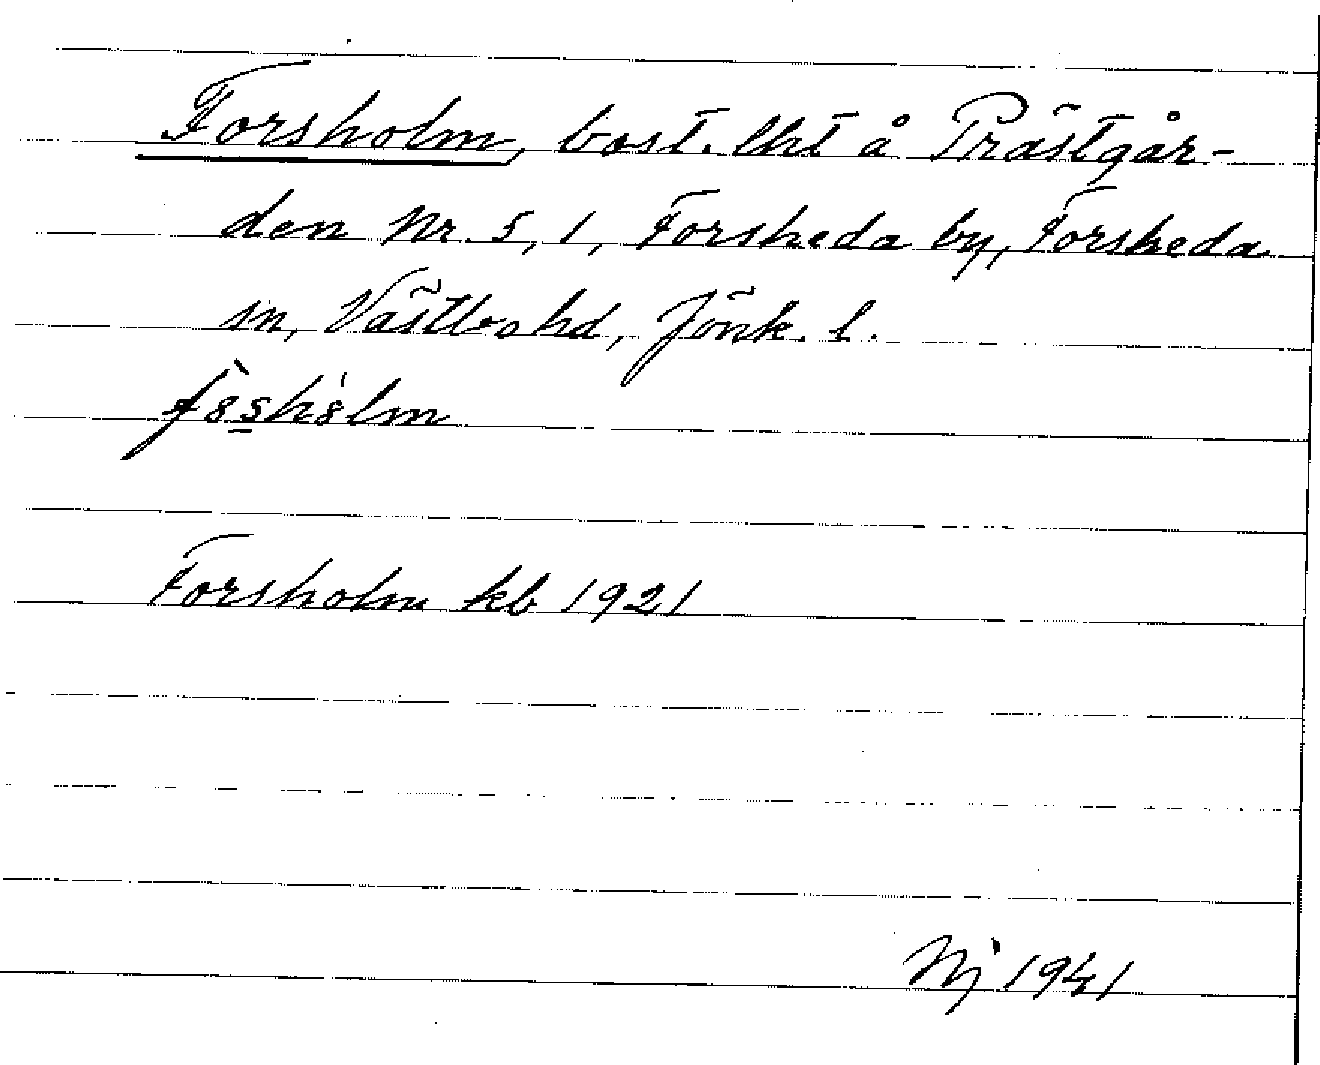 Forsholm, bost. lht å Prästgår-
den Nr. 5, 1, Forsheda by, Forsheda
sn, Västbo hd, Jönk. l.
Forsholm kb 1921
Nj 1941